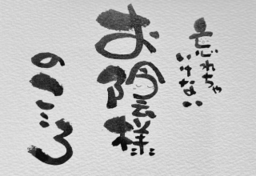 忘れちゃ
いけない
お陰様
のこころ